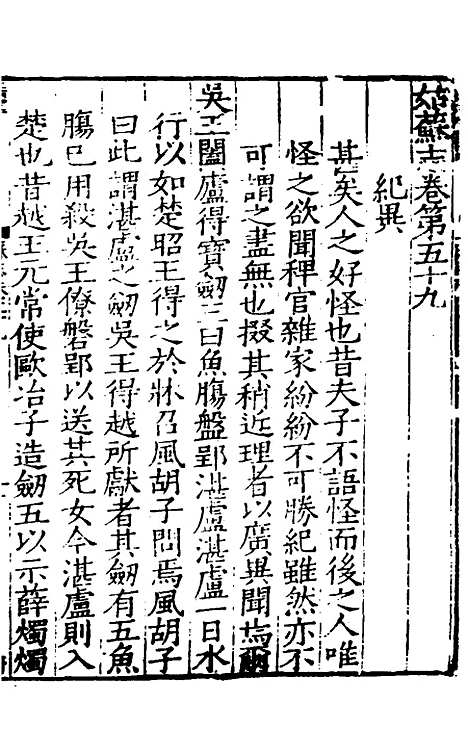 姑蘇志卷第五十九
紀異
甚矣人之好怪也昔夫子不語怪而後之人唯
怪之欲聞稗官雜家紛紛不可勝紀雖然亦不
可謂之盡無也掇其稍近理者以廣異聞焉爾
吳王闔廬得寶劒三曰魚腸盤郢湛盧湛盧一日水
行以如楚昭王得之於牀召風胡子問焉風胡子
曰此謂湛盧之劒吳王得越所獻者其劒有五魚
膓已用殺吳王僚磐郢以送其死女今湛盧則入
楚也昔越王元常使歐冶子造劒五以示薛燭燭